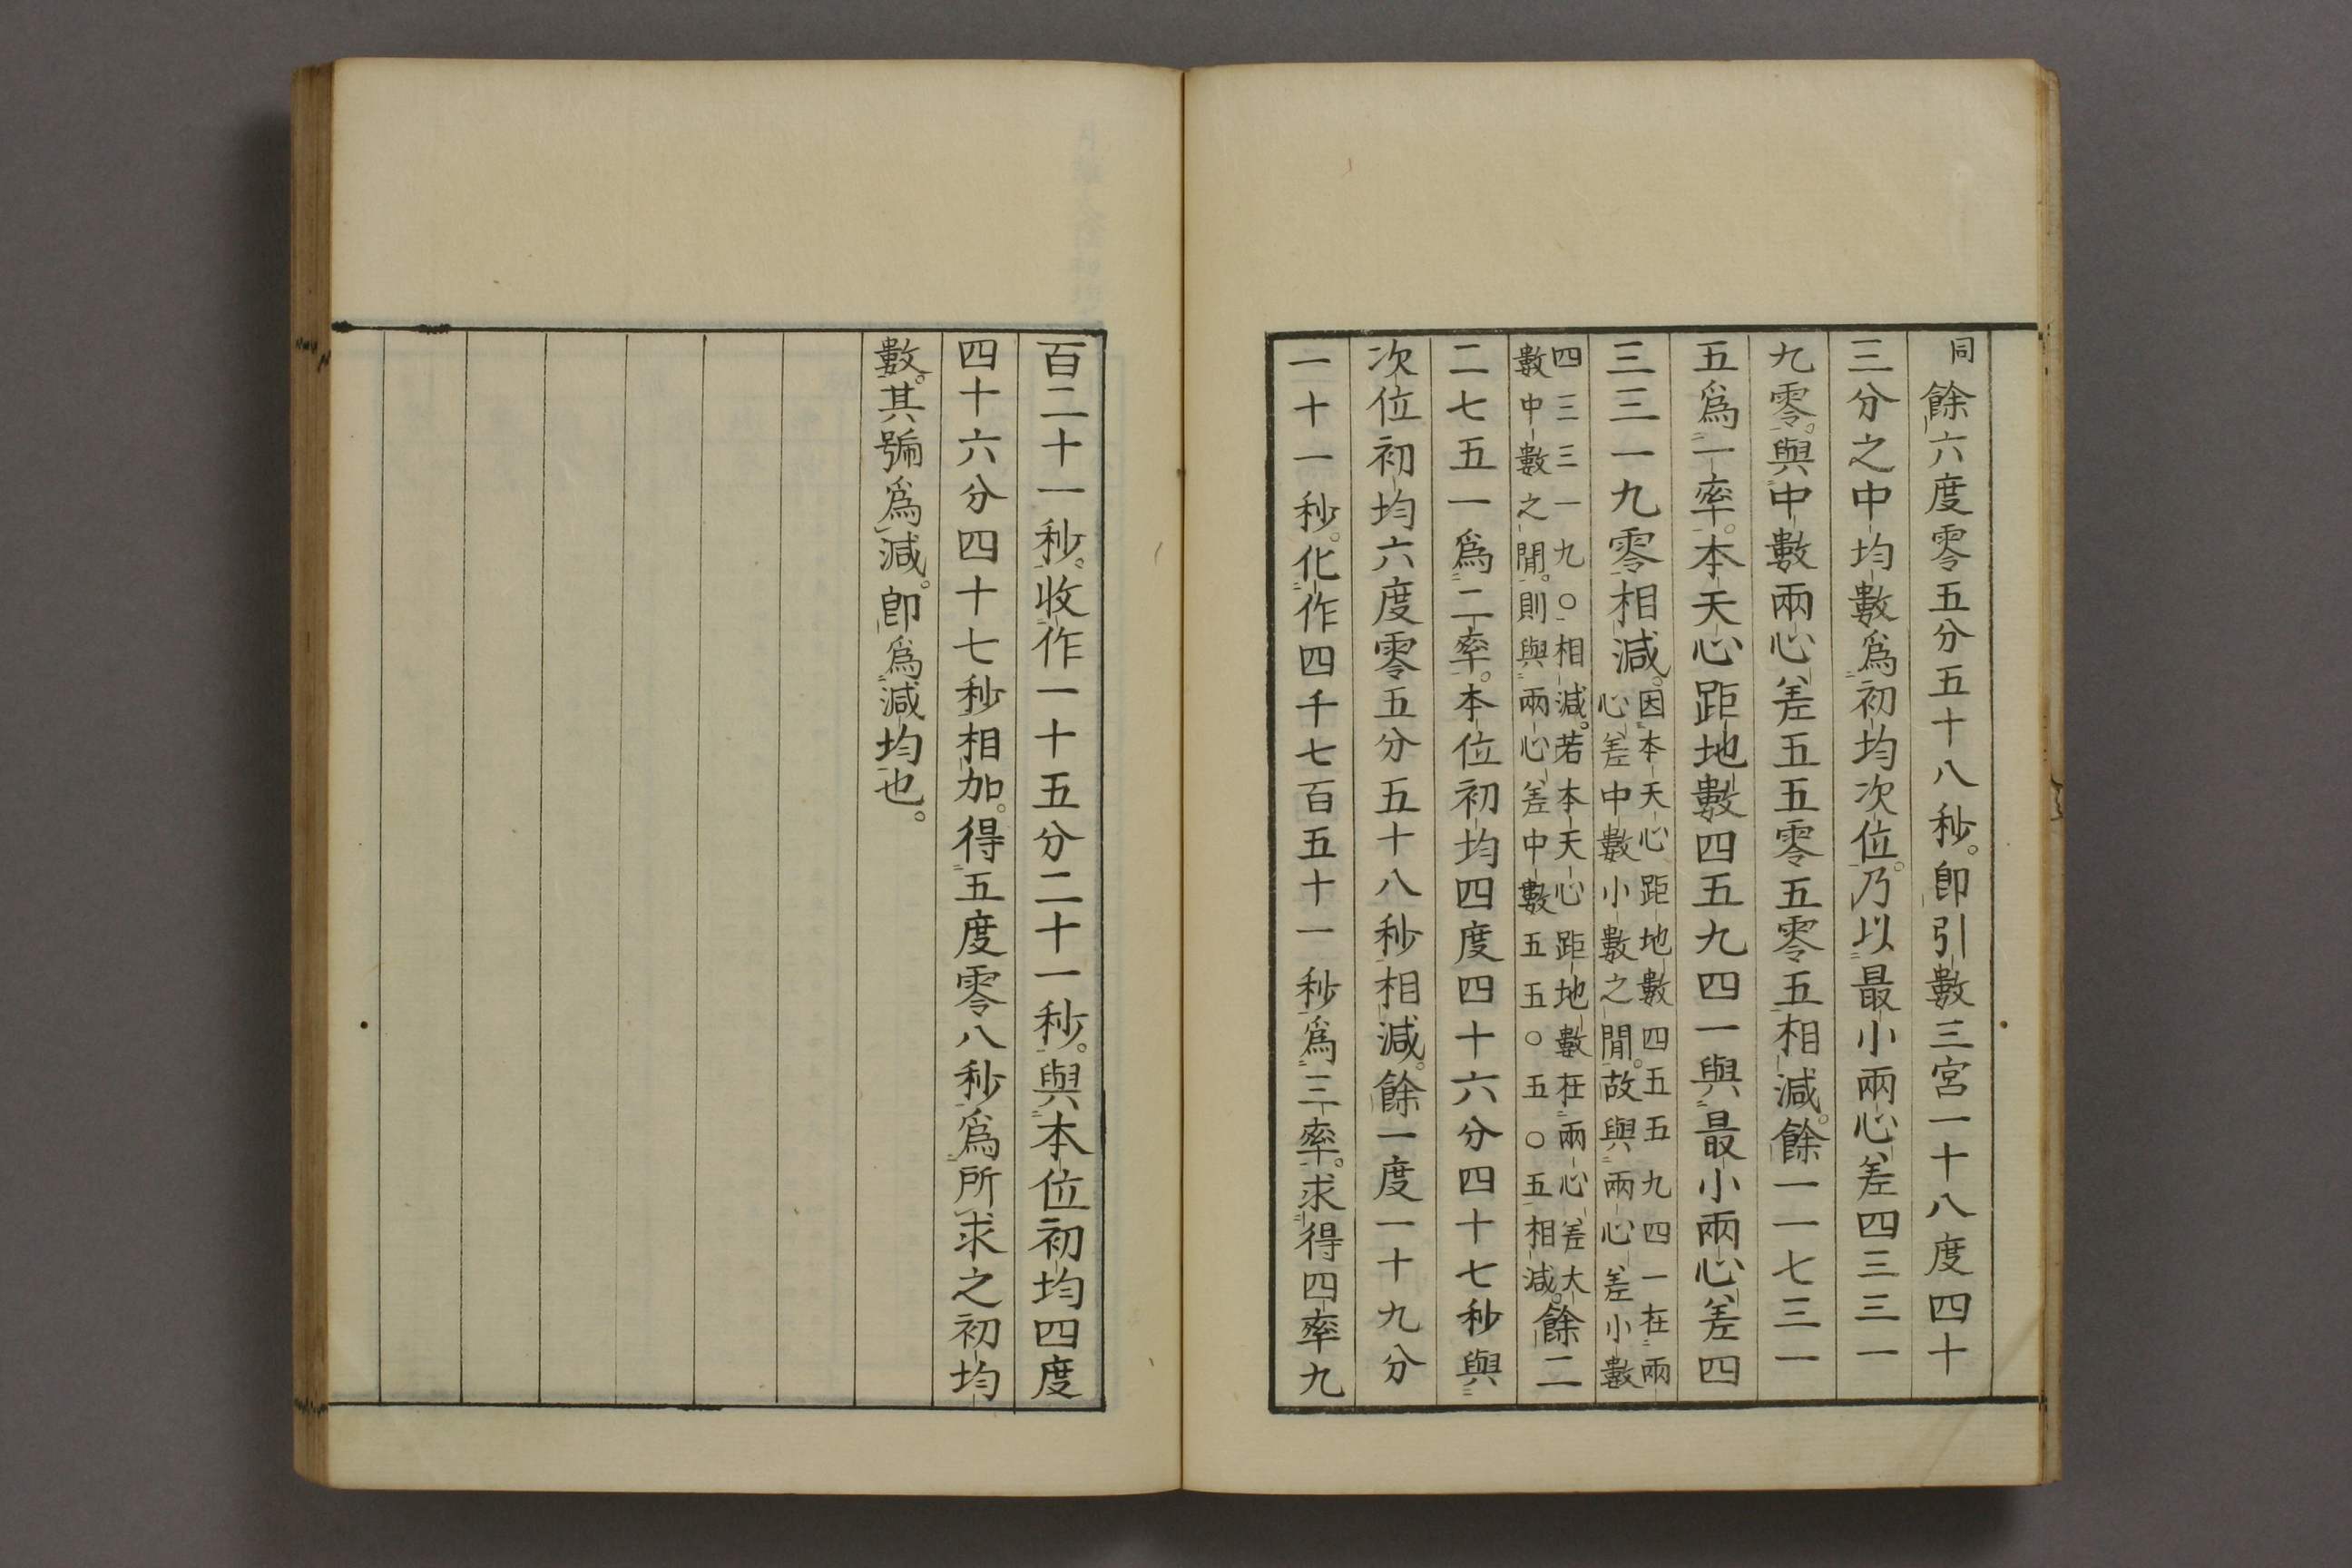 同餘六度零五分五十八秒。卽引數三宮一十八度四十
三分之中均數爲初均次位。乃以最小兩心差四三三一
九零。與中數兩心差五五零五零五相減。餘一一七三一
五爲一率。本天心距地數四五九四一與最小兩心差四
三三一九零相減。因本天心距地數四五五九四一在兩
心差中數小數之間。故與兩心差小數
四三三一九〇相減。若本天心距地數在兩心差大
數中數之間。則與兩心差中數五五〇五〇五相減。餘二
二七五一爲二率。本位初均四度四十六分四十七秒與
次位初均六度零五分五十八秒相減。餘一度一十九分
一十一秒。化作四千七百五十一秒爲三率。求得四率九
百二十一秒。收作一十五分二十一秒。與本位初均四度
四十六分四十七秒相加。得五度零八秒爲所求之初均
數。其號爲減。卽爲減均也。